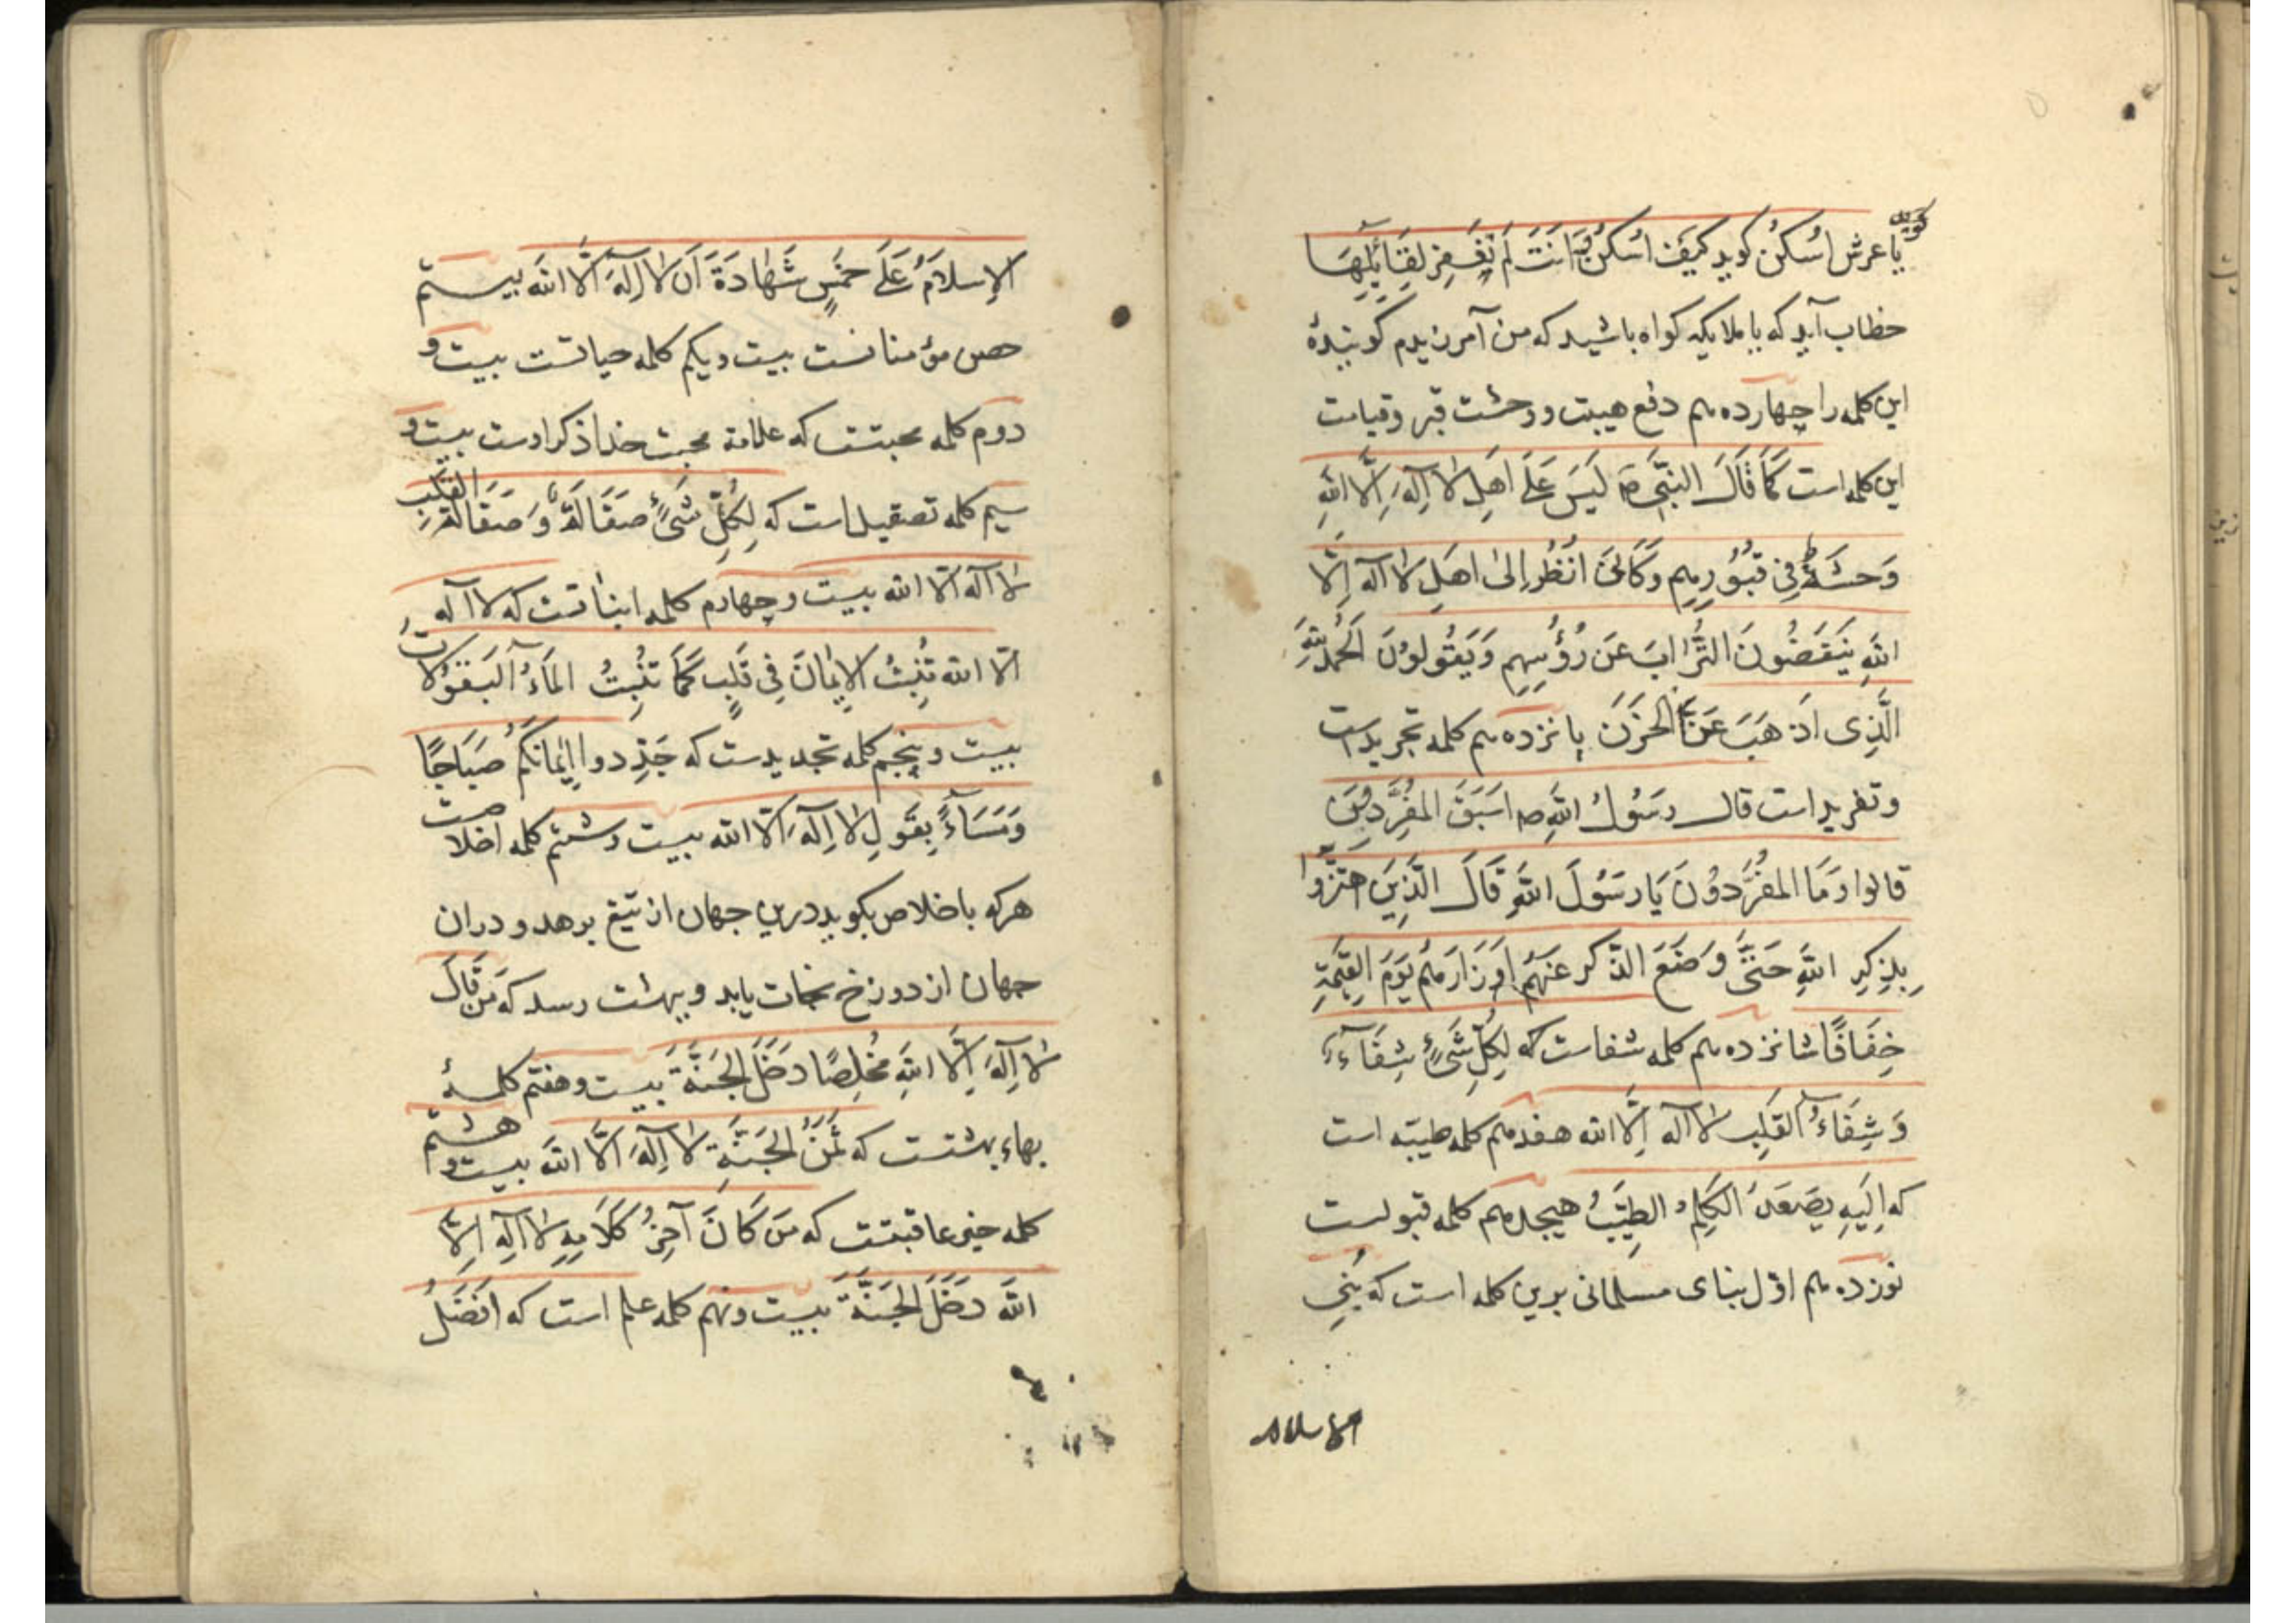 گوید
یا عرش اُسکُن کوید کَیفَ اَسکُنُ وَ اَنتَ لَم تَغفِر لِقَائِلِهَا
خطاب آید که یا ملایکه کواه باشید که من آمرزیدم کویندهٔ
این کلمه را چهاردهم دفع هیبت و وحشت قبر و قیامت
این کلمه است کَمَا قَالَ النَّبِی ص لَیسَ عَلَی اَهلِ لا اِلَهَ اِلَّا اللهِ
وَحشَةٌ فِی قُبُورِهِم وَکَاَنِّی اَنظُرُ اِلیٰ اَهلِ لا اله اِلَّا
اللهِ یَنفَضُونَ التُّرابَ عَن رُؤسِهِم وَیَقُولُونَ اَلحَمدُ لِلّهِ
الَّذِی اَذهَبَ عَنَّا الحَزَنَ پانزدهم کلمه تجریدست
و تفرید است قال رَسُولُ اللهِ ص سَبَقَ المُفَرِّدِینَ
قالوا وَمَا المُفَرِّدُونَ یَا رَسُولَ اللهِ قَالَ الَّذِینَ اهتَزُّوا
بِذِکرِ اللهِ حَتَّی وَضَعَ الذِّکر عَنهُم اَوزَارَهُم یَومَ القِیٰمَةِ
خِفَافًا شانزدهم کلمه شفاست که لِکُلِّ شَیءٍ شِفَآءٌ
وَشِفَاءُ القَلبِ لا اله اِلَّا الله هفدهم کلمه طیبّه است
که اِلَیهِ یَصعَدُ الکَلِمُ الطَیِّبُ هیجدهم کلمه قبولست
نوزدهم اوّل بنای مسلمانی برین کلمه است که بُنِیَ
الاسلام
الاِسلَامُ عَلَی خَمسٍ شَهَادَةَ اَن لا اِلَهَ اِلَّا اللهَ بیستم
حصن مؤمنانست بیست و یکم کلمه حیاتست بیست و
دوم کلمه محبتست که علامة محبت خدا ذکر اوست بیست و
سیم کلمه تصقیل است که لِکُلِّ شَیءٍ صَقَالَةٌ وَ صَقَالَةُ القَلبِ
لا اله الّا الله بیست و چهارم کلمه انباتست که لا اله
الّا الله تُنبِتُ الاِیمَانَ فِی قَلبٍ کَمَا تُنبِتُ المَاءُ البَقُولات
بیست و پنجم کلمه تجدیدست که جَدِّدوا اِیمَانَکُم صَبَاحًا
وَمَسَاءً بِقَولِ لا اِلَهَ اِلّا الله بیست و ششم کلمه اخلاصست
هرکه باخلاص بکوید درین جهان از تیغ برهد و دران
جهان از دوزخ نجات یابد و ببهشت رسد که مَن قَالَ
لا اِلَهَ اِلَّا اللهِ مُخلِصًا دَخَلَ الجَنَّةَ بیست و هفتم کلمهٔ
بهاء بهشتست که ثَمَنُ الجَنَّةِ لا اِلَهَ اِلَّا اللهَ بیست و هشتم
کلمه خیر عاقبتست که مَن کَانَ آخِرُ کَلَامِهِ لا اِلَهِ اِلَّا
اللهَ دَخَلَ الجَنَّةَ بیست و نهم کلمه علم است که اَفضَلُ